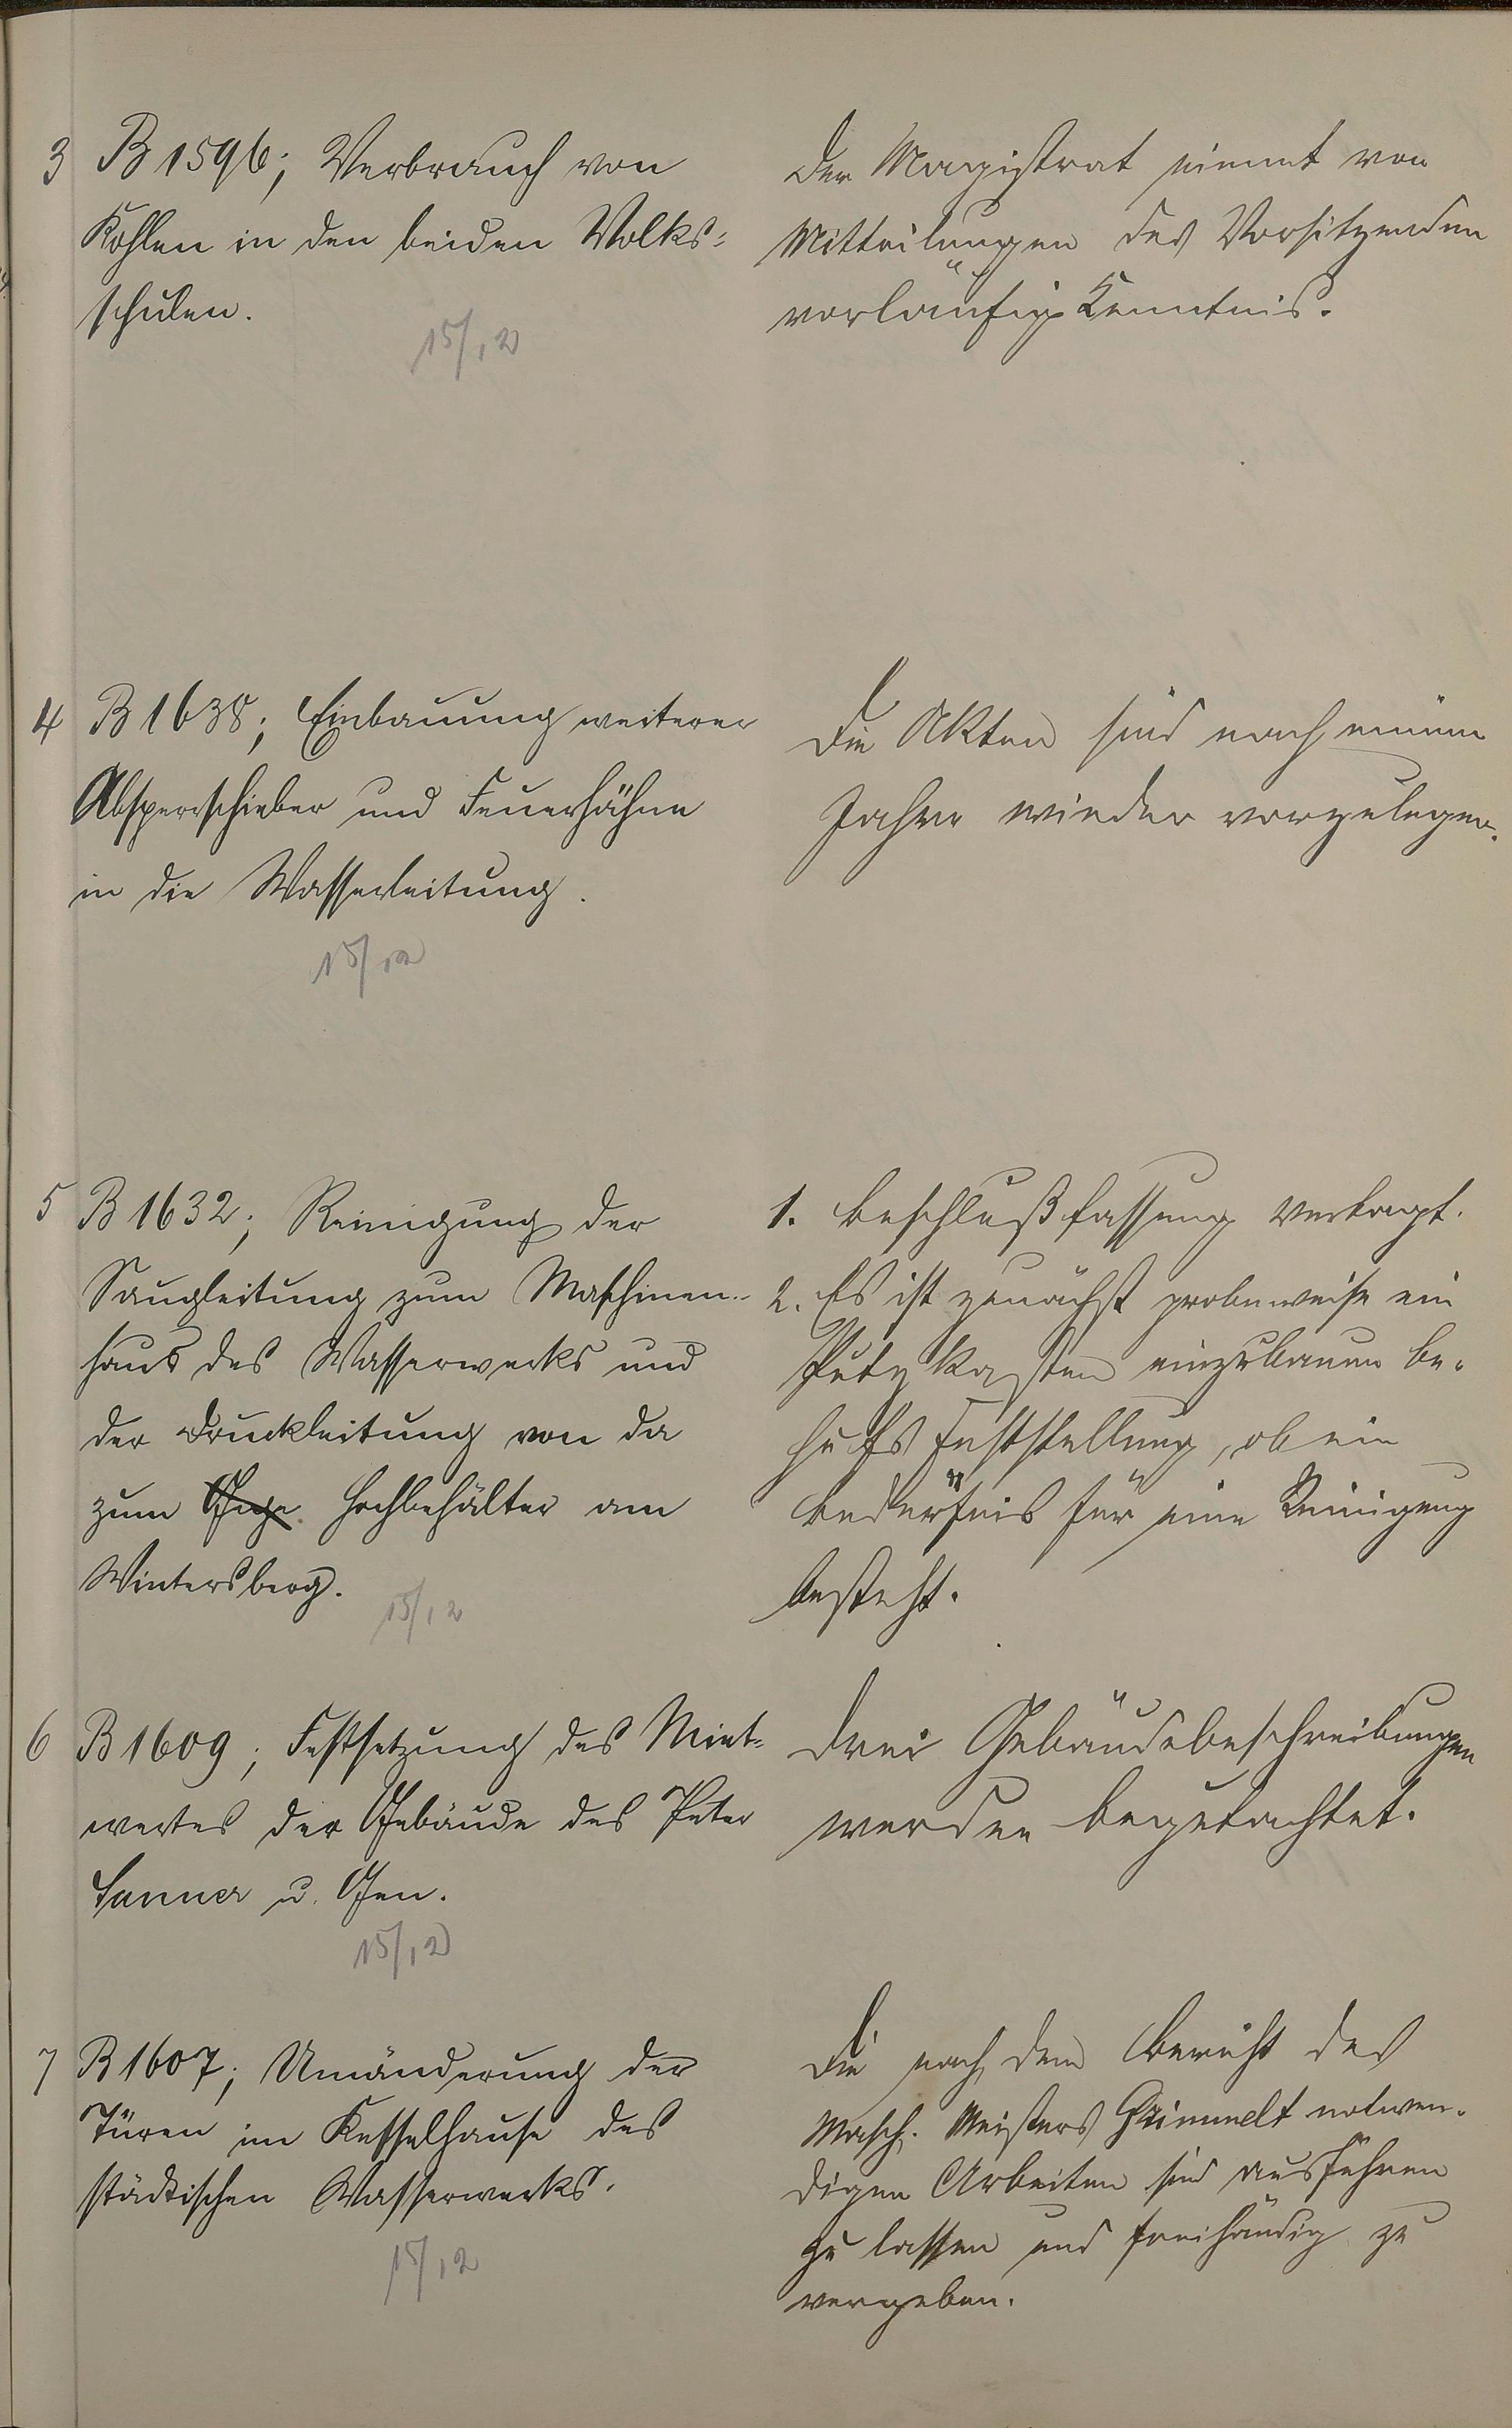 3 B 1596; Verbrauch von
Kohlen in den beiden Volks-
schulen.
15/12
Der Magistrat nimmt von
Mitteilungen des Vorsitzenden
vorläufig Kenntnis.
4 B 1638; Einbauung weiterer
Absperrschieber und Feuerhähne
in die Wasserleitung.
15/12
Die Akten sind nach einem
Jahre wieder vorzulegen.
5 B 1632; Reinigung der
Saugleitung zum Maschinen-
haus des Wasserwerks und
der Druckleitung von da
zum Hochbehälter am
Wintersberg.
15/12
1. Beschlußfassung vertagt.
2. Es ist zunächst probeweise ein
Putzkasten einzubauen be-
hufs Feststellung, ob ein
Bedürfnis für eine Reinigung
besteht.
6 B 1609; Festsetzung des Miet-
wertes der Gebäude des Peter
Sanner u. Gen.
15/12
Drei Gebäudebeschreibungen
werden begutachtet.
7 B 1607; Umänderung der
Türen im Kesselhause des
städtischen Wasserwerks.
15/12
Die nach dem Bericht des
Masch. Meisters notwen-
digen Arbeiten sind ausführen
zu lassen und freihändig zu
vergeben.